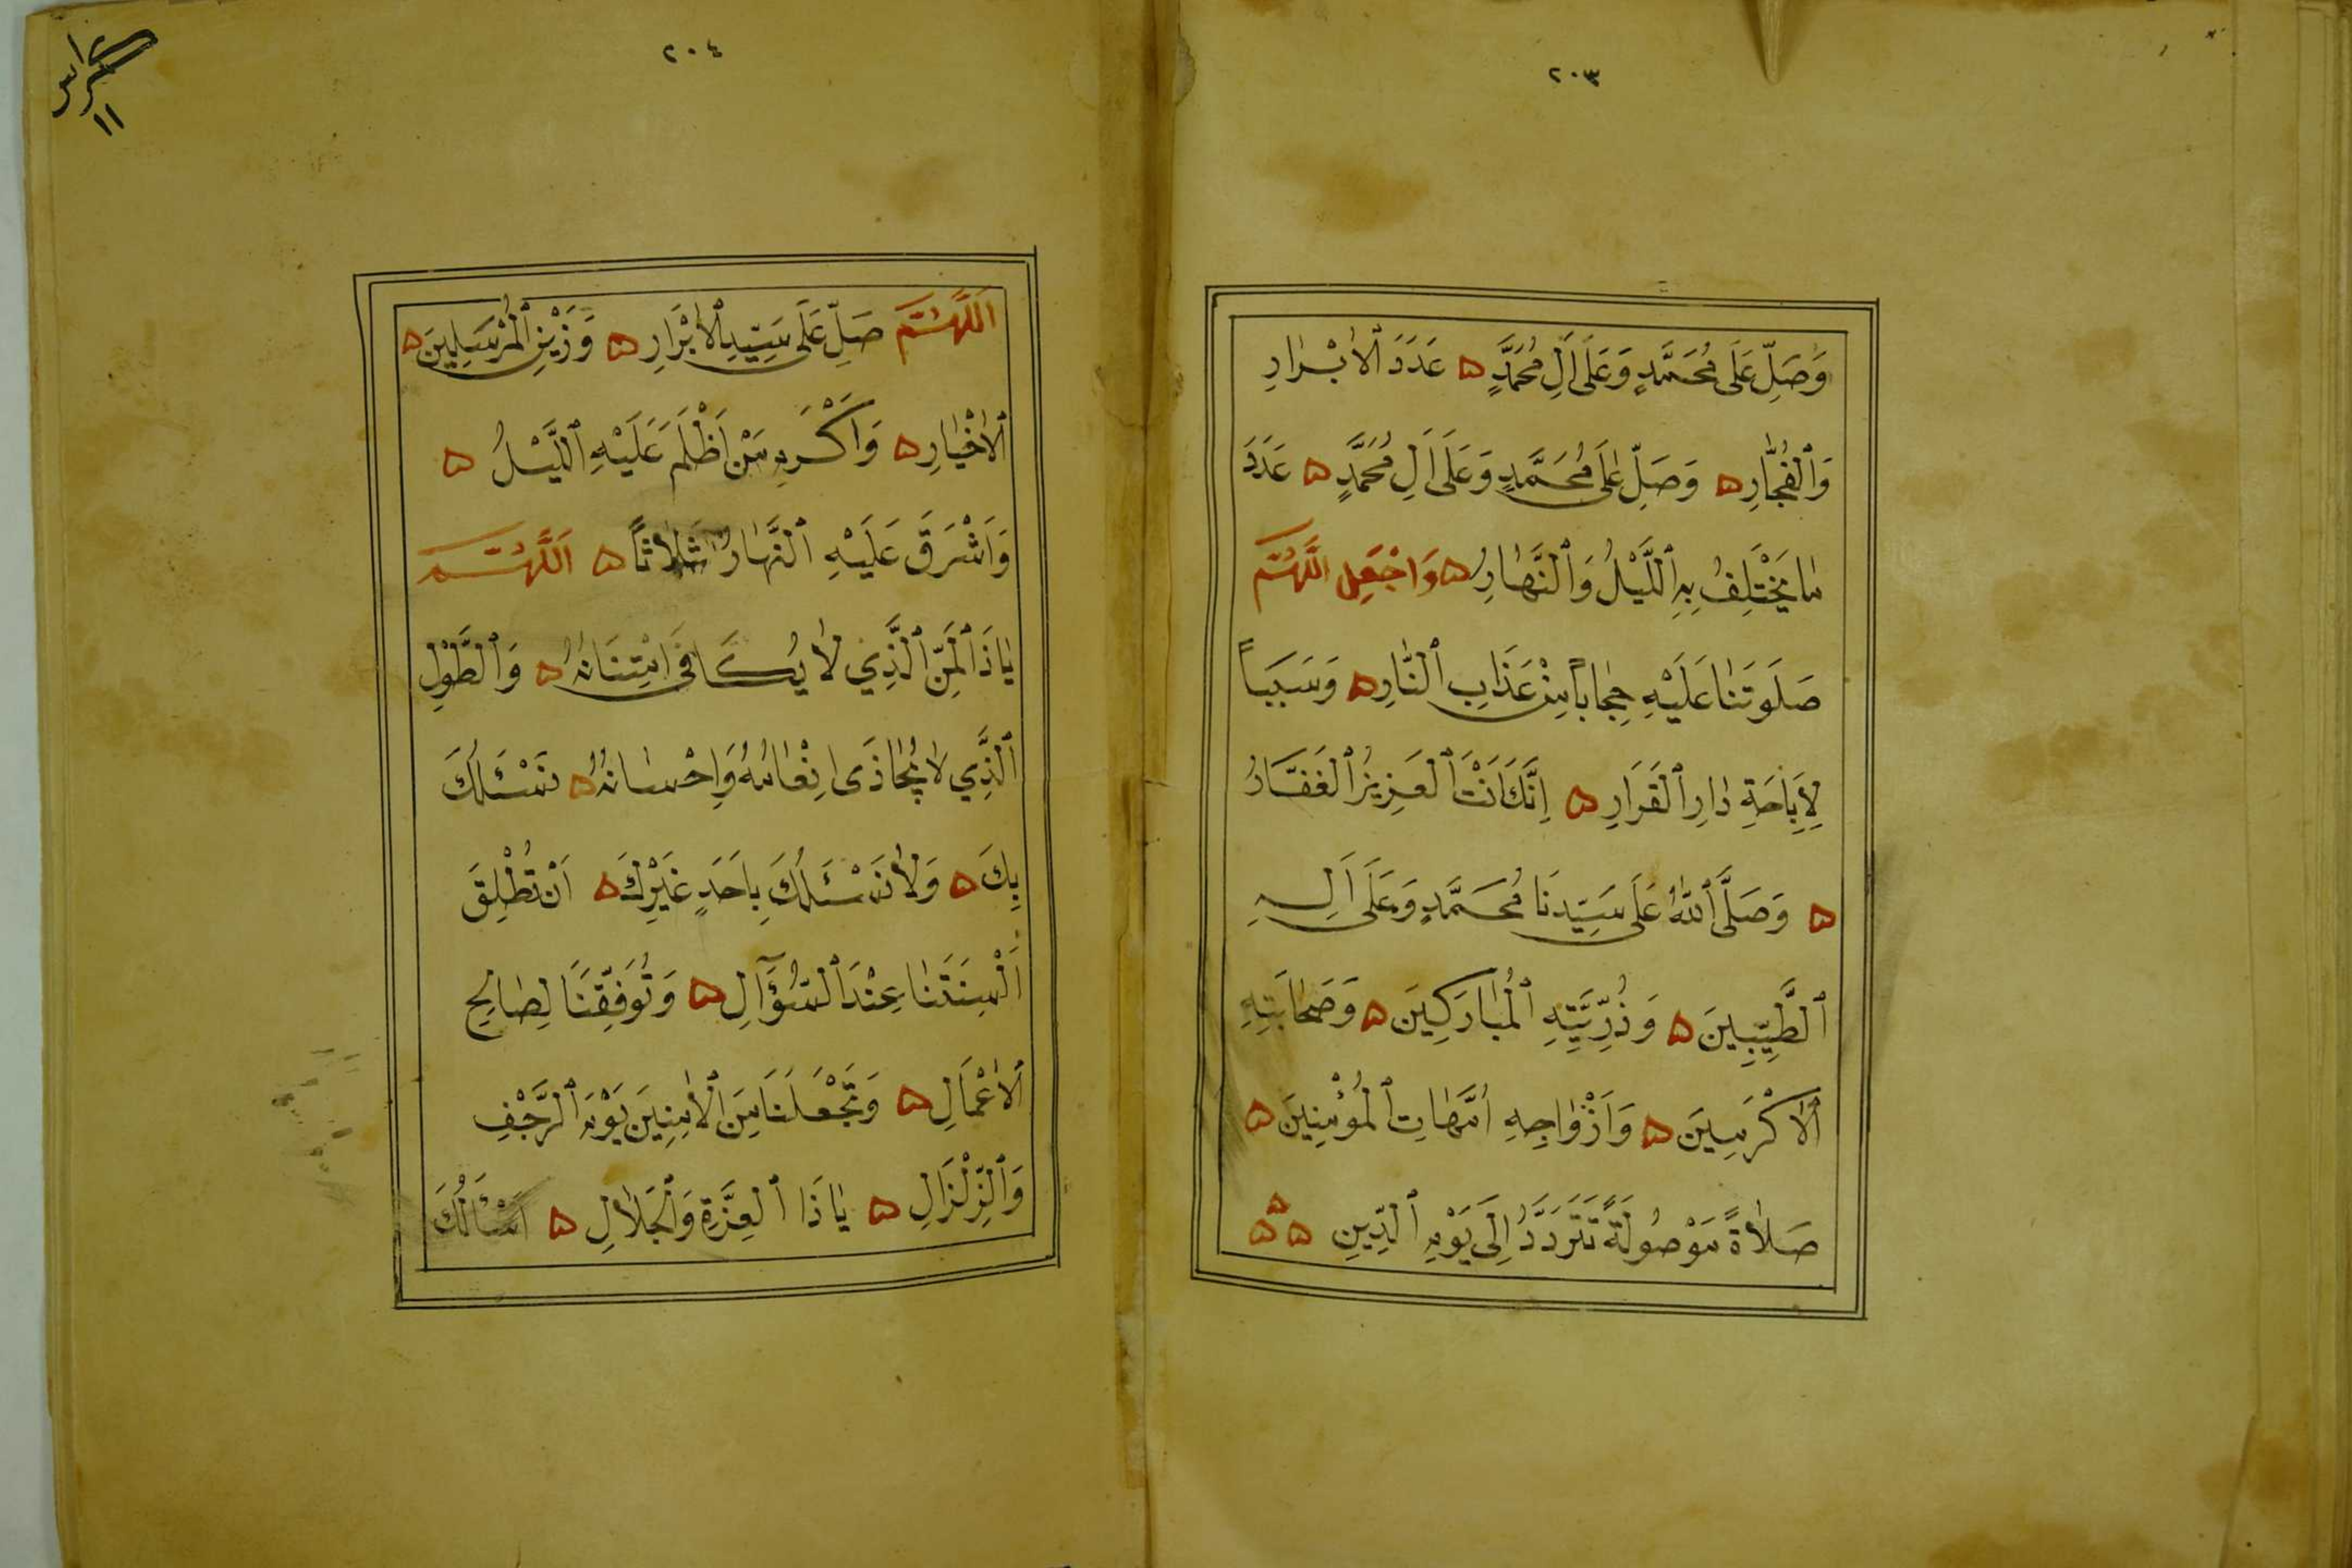 ٢٠٣
وَصَلِّ عَلَى مُحَمَّدٍ وَعَلَى اَلِ مُحَمَّدٍ ۵ عَدَدَ ٱلاَبْرٰارِ
وَٱلْفُجّٰارِ ۵ وَصَلِّ عَلَى مُحَمَّدٍ وَعَلَى اَلِ مُحَمَّدٍ ۵ عَدَدَ
مٰا يَخْتَلِفُ بِهِ ٱللَّيْلُ وَٱلنَّهٰارِ ۵ وَاجْعَلِ اللَّهُمَّ
صَلَوتَنٰا عَلَيْهِ حِجٰاباً مِنْ عَذٰابِ ٱلنّٰارِ ۵ وَسَبَباً
لِاِبٰاحَةِ دٰارِ ٱلْقَرَارِ ۵ اِنَّكَ اَنْتَ ٱلْعَزِيزُ ٱلْغَفَّارُ
۵ وَصَلَّى ٱللّٰهُ عَلَى سَيِّدِنَا مُحَمَّدٍ وَعَلَى اَلِهِ
ٱلطَّيِّبِينَ ۵ وَذُرِّيَّتِهِ ٱلْمُبٰارَكِينَ ۵ وَصَحٰابَتِهِ
ٱلاَكْرَمِينَ ۵ وَاَزْوٰاجِهِ اُمَّهٰاتِ ٱلْمُؤْمِنِينَ ۵
صَلاٰةً مَوْصُولَةً تَتَرَدَّدُ اِلَى يَوْمِ ٱلدِّينِ ۵ ۵ ۵
٢٠٤
كراس
١١
اَللَّهُمَّ صَلِّ عَلَى سَيِّدِ ٱلاَبْرَارِ ۵ وَزَيْنِ ٱلْمُرْسَلِينَ ۵
ٱلاَخْيٰارِ ۵ وَاَكْرَمِ مَنْ اَظْلَمَ عَلَيْهِ ٱللَّيْلُ ۵
وَاَشْرَقَ عَلَيْهِ ٱلنَّهٰارُ ثَلاٰثاً ۵ اَللَّهُمَّ
يٰا ذَا ٱلْمَنِّ ٱلَّذِي لاٰ يُكٰافَى اِمْتِنَانُهُ ۵ وَٱلطَّوْلِ
ٱلَّذِي لاٰ يُجٰاذَى اِنْعٰامُهُ وَاِحْسٰانُهُ ۵ نَسْئَلُكَ
بِكَ ۵ وَلاٰ نَسْئَلُكَ بِاَحَدٍ غَيْرِكَ ۵ اَنْ تُطْلِقَ
اَلْسِنَتَنٰا عِنْدَ ٱلسُّؤَآلِ ۵ وَتُوَفِّقَنَا لِصٰالِحِ
ٱلاَعْمَالِ ۵ وَتَجْعَلَنَا مِنَ ٱلاٰمِنِينَ يَوْمَ ٱلرَّجْفِ
وَٱلزِّلْزَالِ ۵ يٰا ذَا ٱلْعِزَّةِ وَٱلْجَلاٰلِ ۵ اَسْئَالُكَ